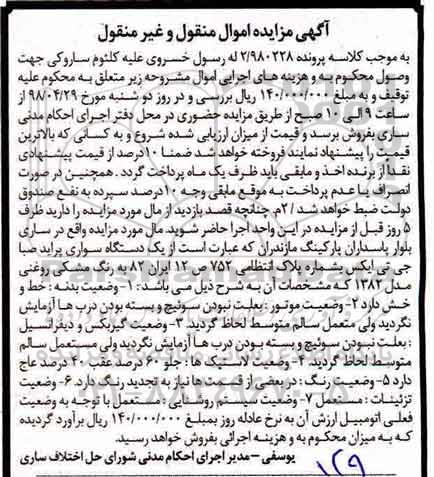 آگهی مزایده اموال منقول و غیر منقول
به موجب کلاسه پرونده ۲/۹۸۰۲۲۸ له رسول خسروی علیه کلثوم ساروکی جهت
وصول محکوم به و هزینه های اجرایی اموال مشروحه زیر متعلق به محکوم علیه
توقیف و به مبلغ ۱۴۰/۰۰۰/۰۰۰ ریال بررسی و در روز دو شنبه مورخ ۹۸/۰۴/۲۹ از
ساعت ۹ الی ۱۰ صبح از طریق مزایده حضوری در محل دفتر اجرای احکام مدنی
ساری بفروش برسد و قیمت از میزان ارزیابی شده شروع و به کسانی که بالاترین
قیمت را پیشنهاد نمایند فروخته خواهد شد ضمنا ۱۰ درصد از قیمت پیشنهادی
نقدا از برنده اخذ و مابقی باید ظرف یک ماه پرداخت گردد . همچنین در صورت
انصراف یا عدم پرداخت به موقع مابقی وجه ۱۰ درصد سپرده به نفع صندوق
دولت ضبط خواهد شد / ۲م. چنانچه قصد بازدید از مال مورد مزایده را دارید ظرف
۵ روز قبل از مزایده در این واحد اجرا حاضر شوید. مال مورد مزایده واقع در ساری
بلوار پاسداران پارکینگ مازندران که عبارت است از یک دستگاه سواری پراید صبا
جی تی ایکس بشماره پلاک انتظامی ۷۵۲ ص ۱۲ ایران ۸۲ به رنگ مشکی روغنی
مدل ۱۳۸۲ که مشخصات آن به شرح ذیل می باشد: ۱- وضعیت بدنه : خط و
خش دارد ۲- وضعیت موتور : بعلت نبودن سوئیچ و بسته بودن درب ها آزمایش
نگردید ولی متعمل سالم متوسط لحاظ گردید. ۳- وضعیت گیربکس و دیفرانسیل
: بعلت نبودن سوئیچ و بسته بودن درب ها آزمایش نگردید ولی مستعمل سالم
متوسط لحاظ گردید. ۴- وضعیت لاستیک ها : جلو ۶۰ درصد عقب ۲۰ درصد عاج
دارد ۵- وضعیت رنگ : در بعضی از قسمت ها نیاز به تجدید رنگ دارد. ۶- وضعیت
تزئینات : مستعمل ۷- وضعیت سیستم روشنایی : مستعمل با توجه به وضعیت
فعلی اتومبیل ارزش آن به نرخ عادله روز بمبلغ ۱۴۰/۰۰۰/۰۰۰ ریال برآورد گردیده
که به میزان محکوم به و هزینه اجرائی بفروش خواهد رسید.
یوسفی - مدیر اجرای احکام مدنی شورای حل اختلاف ساری